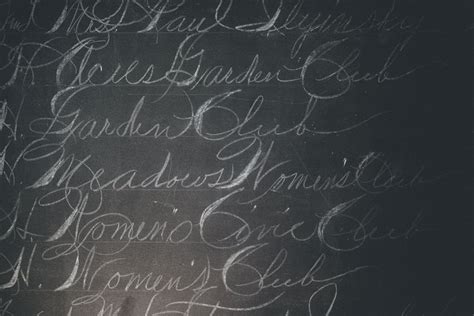 Mrs. Paul
Acres Garden Club
N. Garden Club
N. Meadows Women's Club
N. Women's Civic Club
N. Women's Club